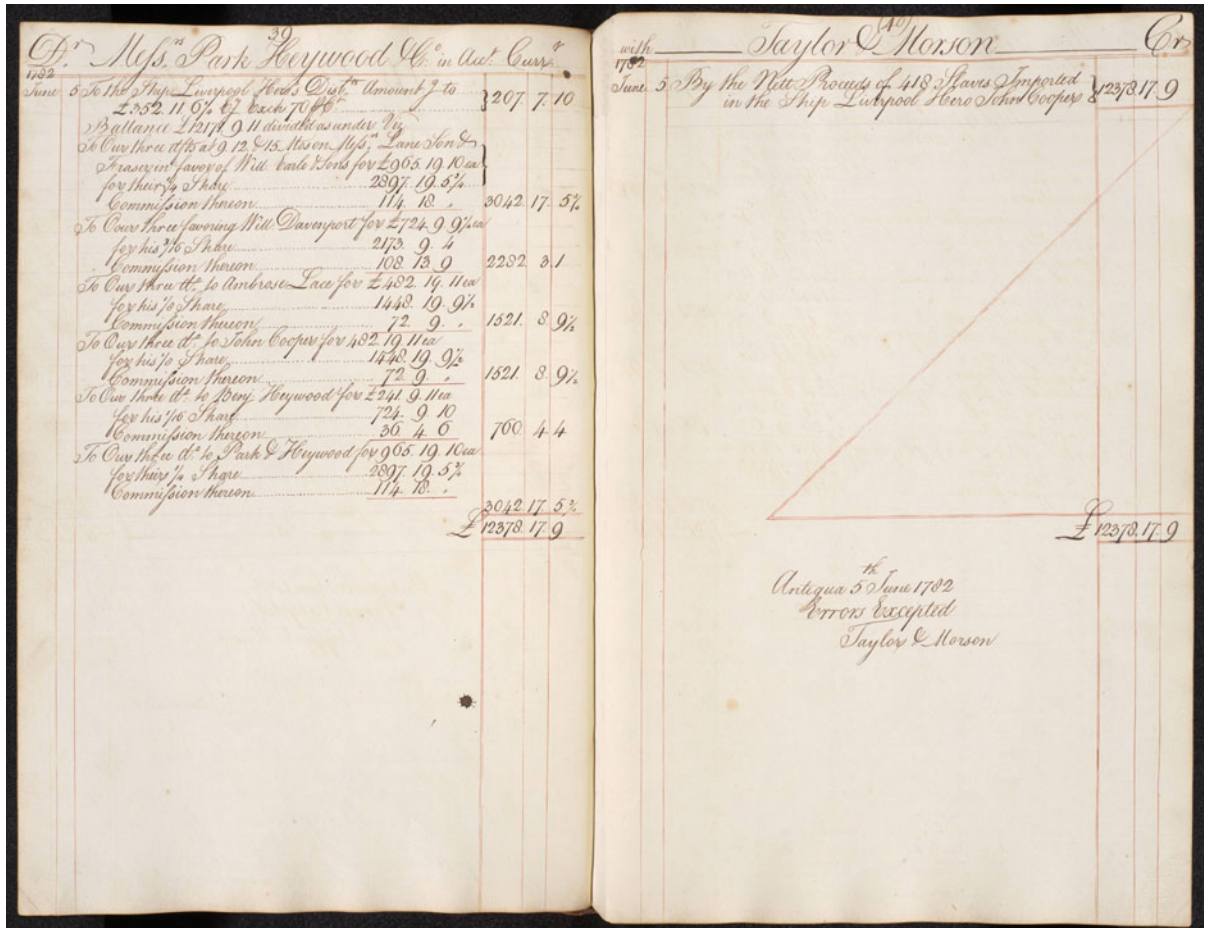 39
Dr. Messrs. Park Heywood & Co. in Acct. Currt
1782
June 5 To the Ship Liverpool Hero's Disbts Amount to
£352. 11. 6½ Exch 70 207. 7. 10
Ballance £12171. 9. 11 divided as under Viz
To Our three dfts at 9. 12. & 15. Mos on Messrs. Lane Son &
Fraser in favor of Will. Earle & Sons for £965. 19. 10 ea
for their ¼ Share 2897. 19. 5¼
Commission thereon 114. 18. „ 3042. 17. 5¼
To Oour three favoring Will. Davenport for £724. 9. 9¼ ea
for his 3/16 Share 2173. 9. 4
Commission thereon 108. 13. 9 2282. 3. 1
To Our three do. to Ambrose Lace for £482. 19. 11 ea
for his ⅛ Share 1448. 19. 9½
Commission thereon 72. 9. „ 1521. 8. 9½
To Our three do. to John Cooper for 482 19 11 ea
for his ⅛ Share 1448. 19. 9½
Commission thereon 72. 9. „ 1521. 8. 9½
To Our three do. to Benj. Heywood for £241. 9. 11 ea
for his 1/16 Share 724. 9. 10
Commission thereon 36. 4. 6 760. 4. 4
To Our three do. to Park & Heywood for 965. 19. 10 ea
for theirs ¼ Share 2897. 19. 5¼
Commission thereon 114. 18. „
3042. 17. 5¼
£ 12378. 17. 9
(40)
with Taylor & Morson Cr
1782
June 5 By the Nett Proceeds of 418 Slaves Imported
in the Ship Liverpool Hero John Cooper 12378. 17. 9
£ 12378. 17. 9
Antigua 5th June 1782
Errors Excepted
Taylor & Morson